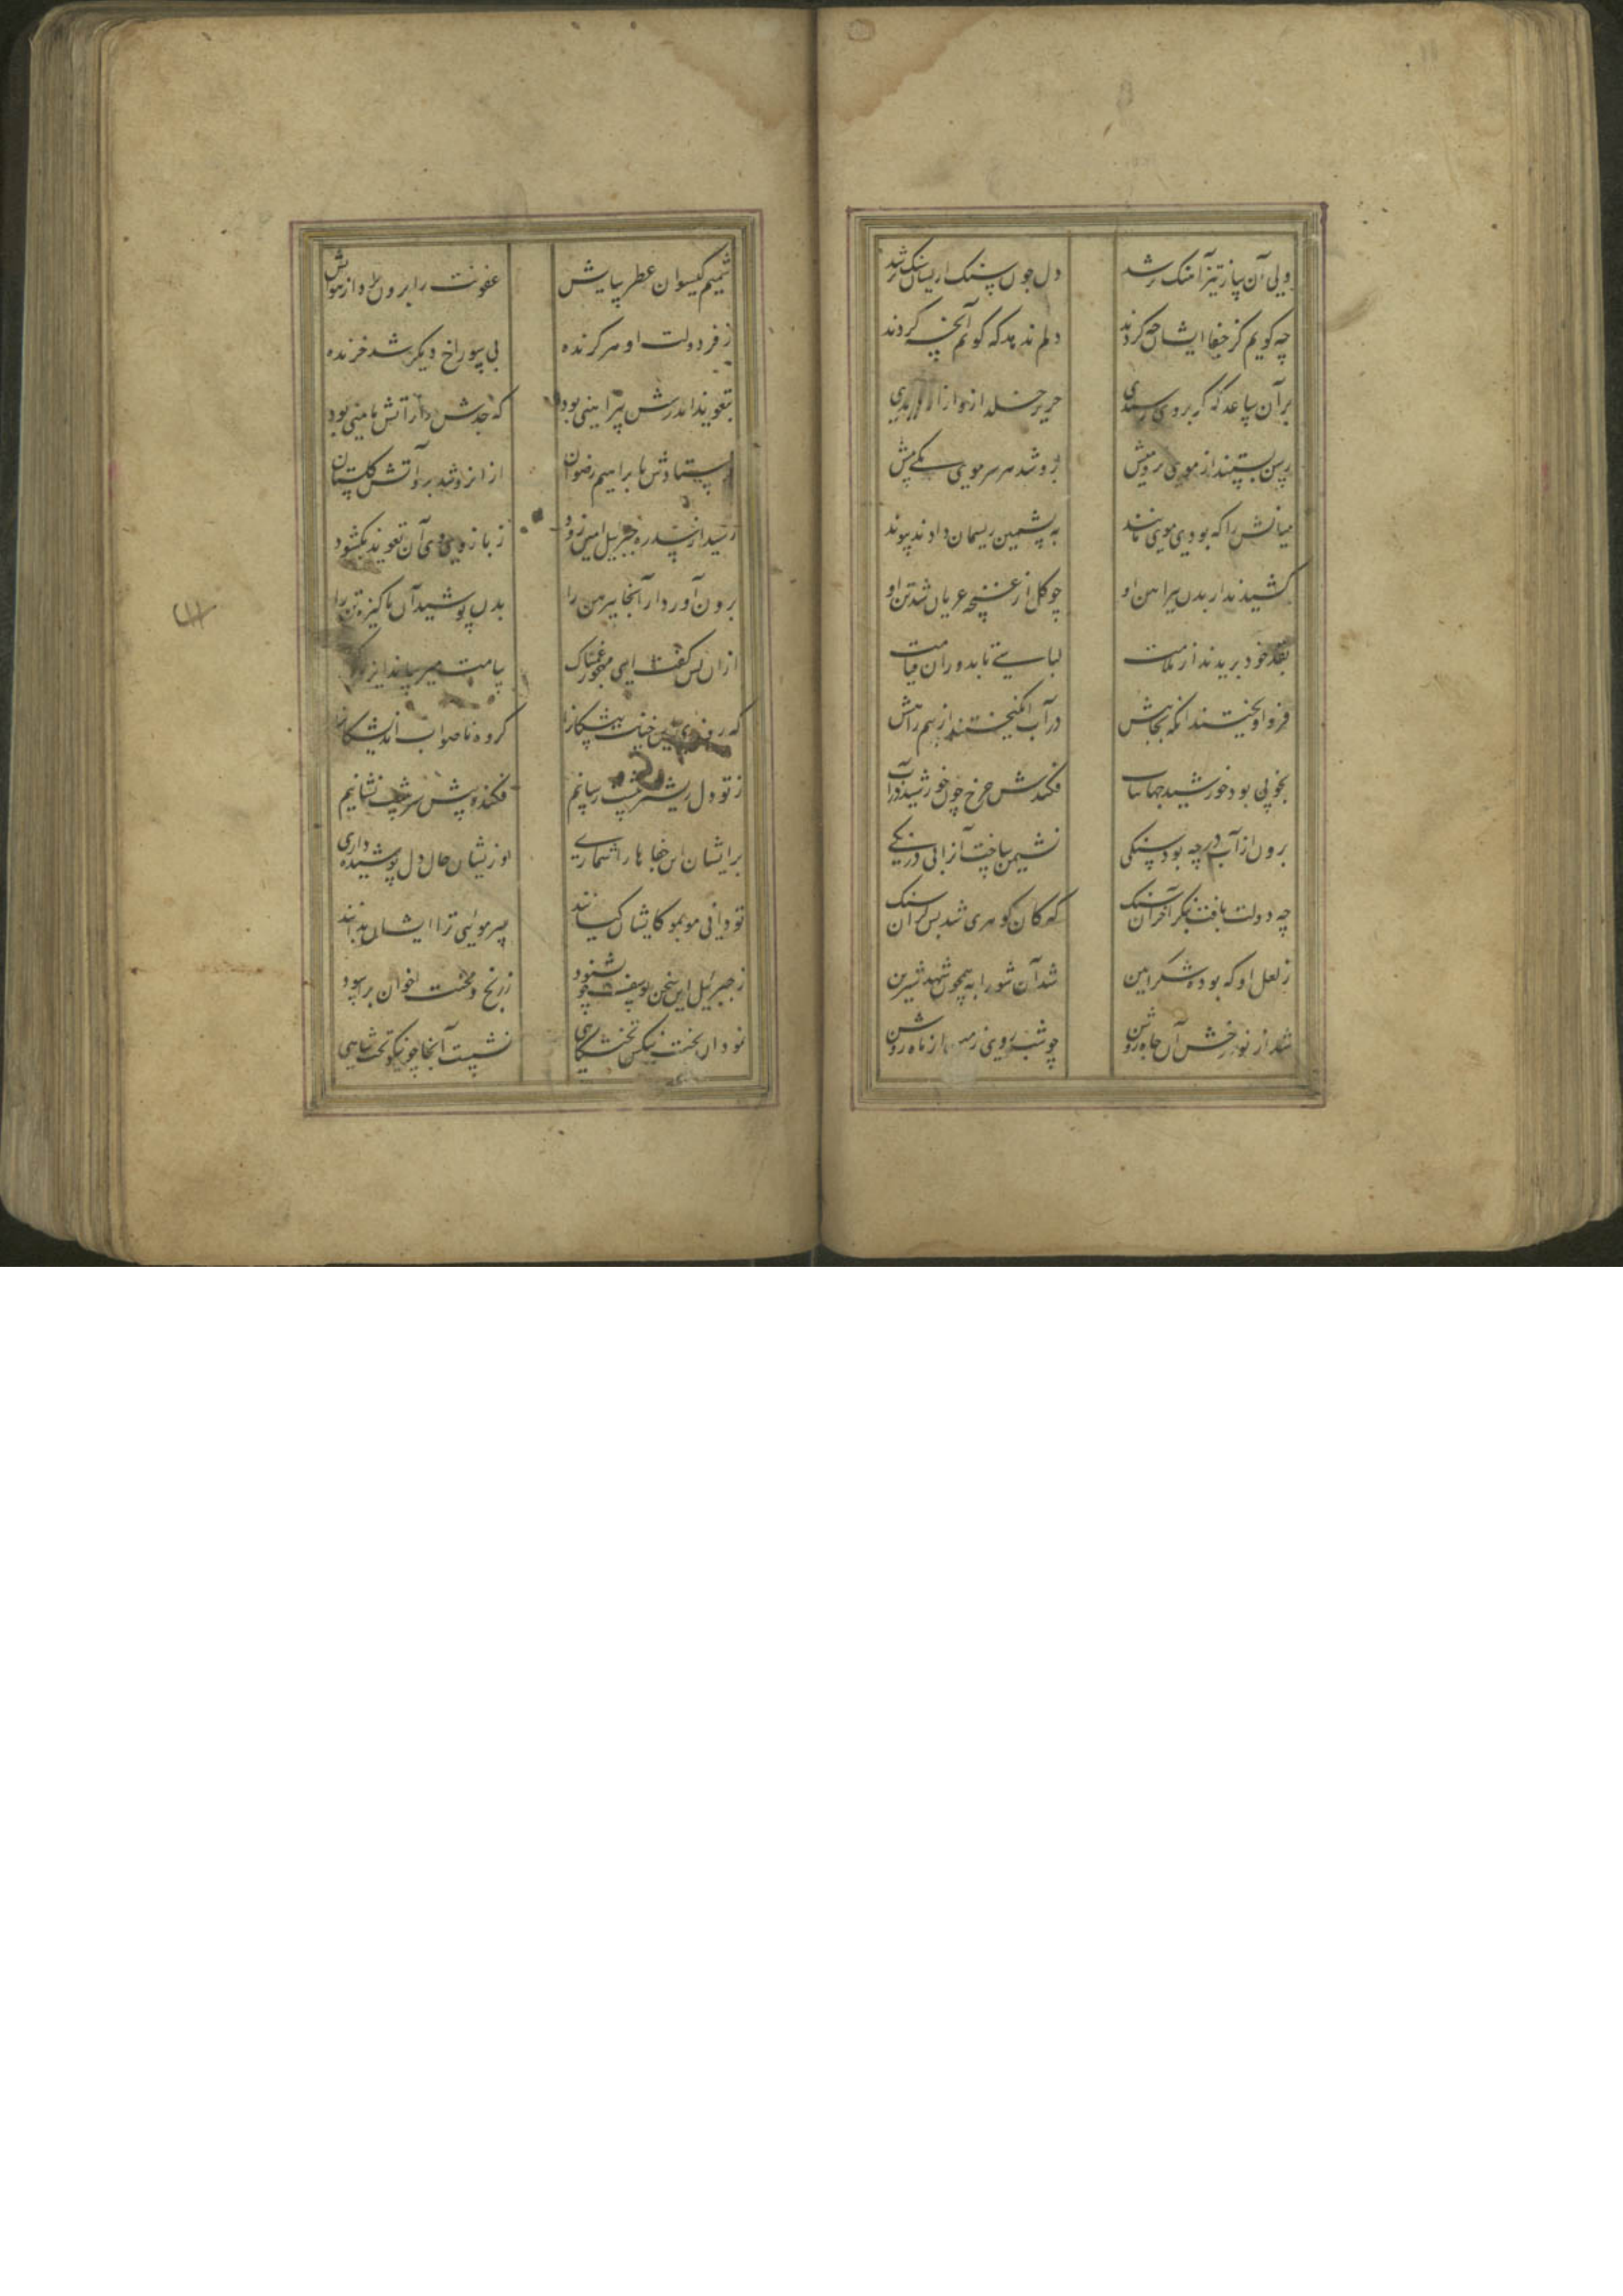 ولی آن ساز تیز آهنک‌تر شد دل چون سنک ایشان سنک‌تر شد
چه کویم کز جفا ایشان چه کردند دلم ندهد که کویم آنچه کردند
بر آن ساعد که کر بروی رسیدی حریر خلد ازو آزار دیدی
رسن بستند از موی بز و میش زو شد هر سر موی یکی نیش
میانش را که بودی موی مانند به پشمین ریسمان دادند پیوند
کشیدند از بدن پیراهن او چو کل از غنچه عریان شد تن او
بقد خود بریدند از ملامت لباسی تا بدوران قیامت
فرو آویختند آنکه بچاهش در آب انکیختند از نیم راهش
بخوبی بود خورشید جهانتاب فکندش چرخ چون خورشید در آب
برون از آب در چه بود سنکی نشیمن ساخت آنرا بی درنکی
چه دولت یافت بنکر آخر آن سنک که کان کوهری شد بس کران سنک
ز لعل او که بوده شکر آیین شد آن شورابه همچون شهد شیرین
شد از نور رخش آن چاه روشن چو شب روی زمین از ماه روشن
شمیم کیسوان عطر سایش عفونت را برون برد از هوایش
ز فر دولت او هر کزنده بی سوراخ دیکر شد خزنده
بتعویذ اندرش پیراهنی بود که جدش را ز آتش مأمنی بود
فرستادش بابراهیم رضوان از آنرو شد بر او آتش کلستان
رسید از سدره جبریل امین زود ز بازوی وی آن تعویذ بکشود
برون آورد از آنجا پیرهن را بدان پوشید آن پاکیزه تن را
از آن پس کفت ای مهجور غمناک پیامت میرساند ایزد پاک
که روزی این خیانت پیشکانرا کروه ناصواب اندیشکانرا
ز تو دل ریش‌تر پیشت رسانیم فکنده پیش سر پیشت نشانیم
بر ایشان این جفاها را شماری وزیشان حال دل پوشیده داری
تو دانی مو بمو کایشان کیانند سر مویی ترا ایشان ندانند
ز جبریل این سخن یوسف چو بشنود ز رنج و محنت اخوان برآسود
نمود آن تخت سنکش تختکاهی نشست آنجا چو نیکو تخت شاهی